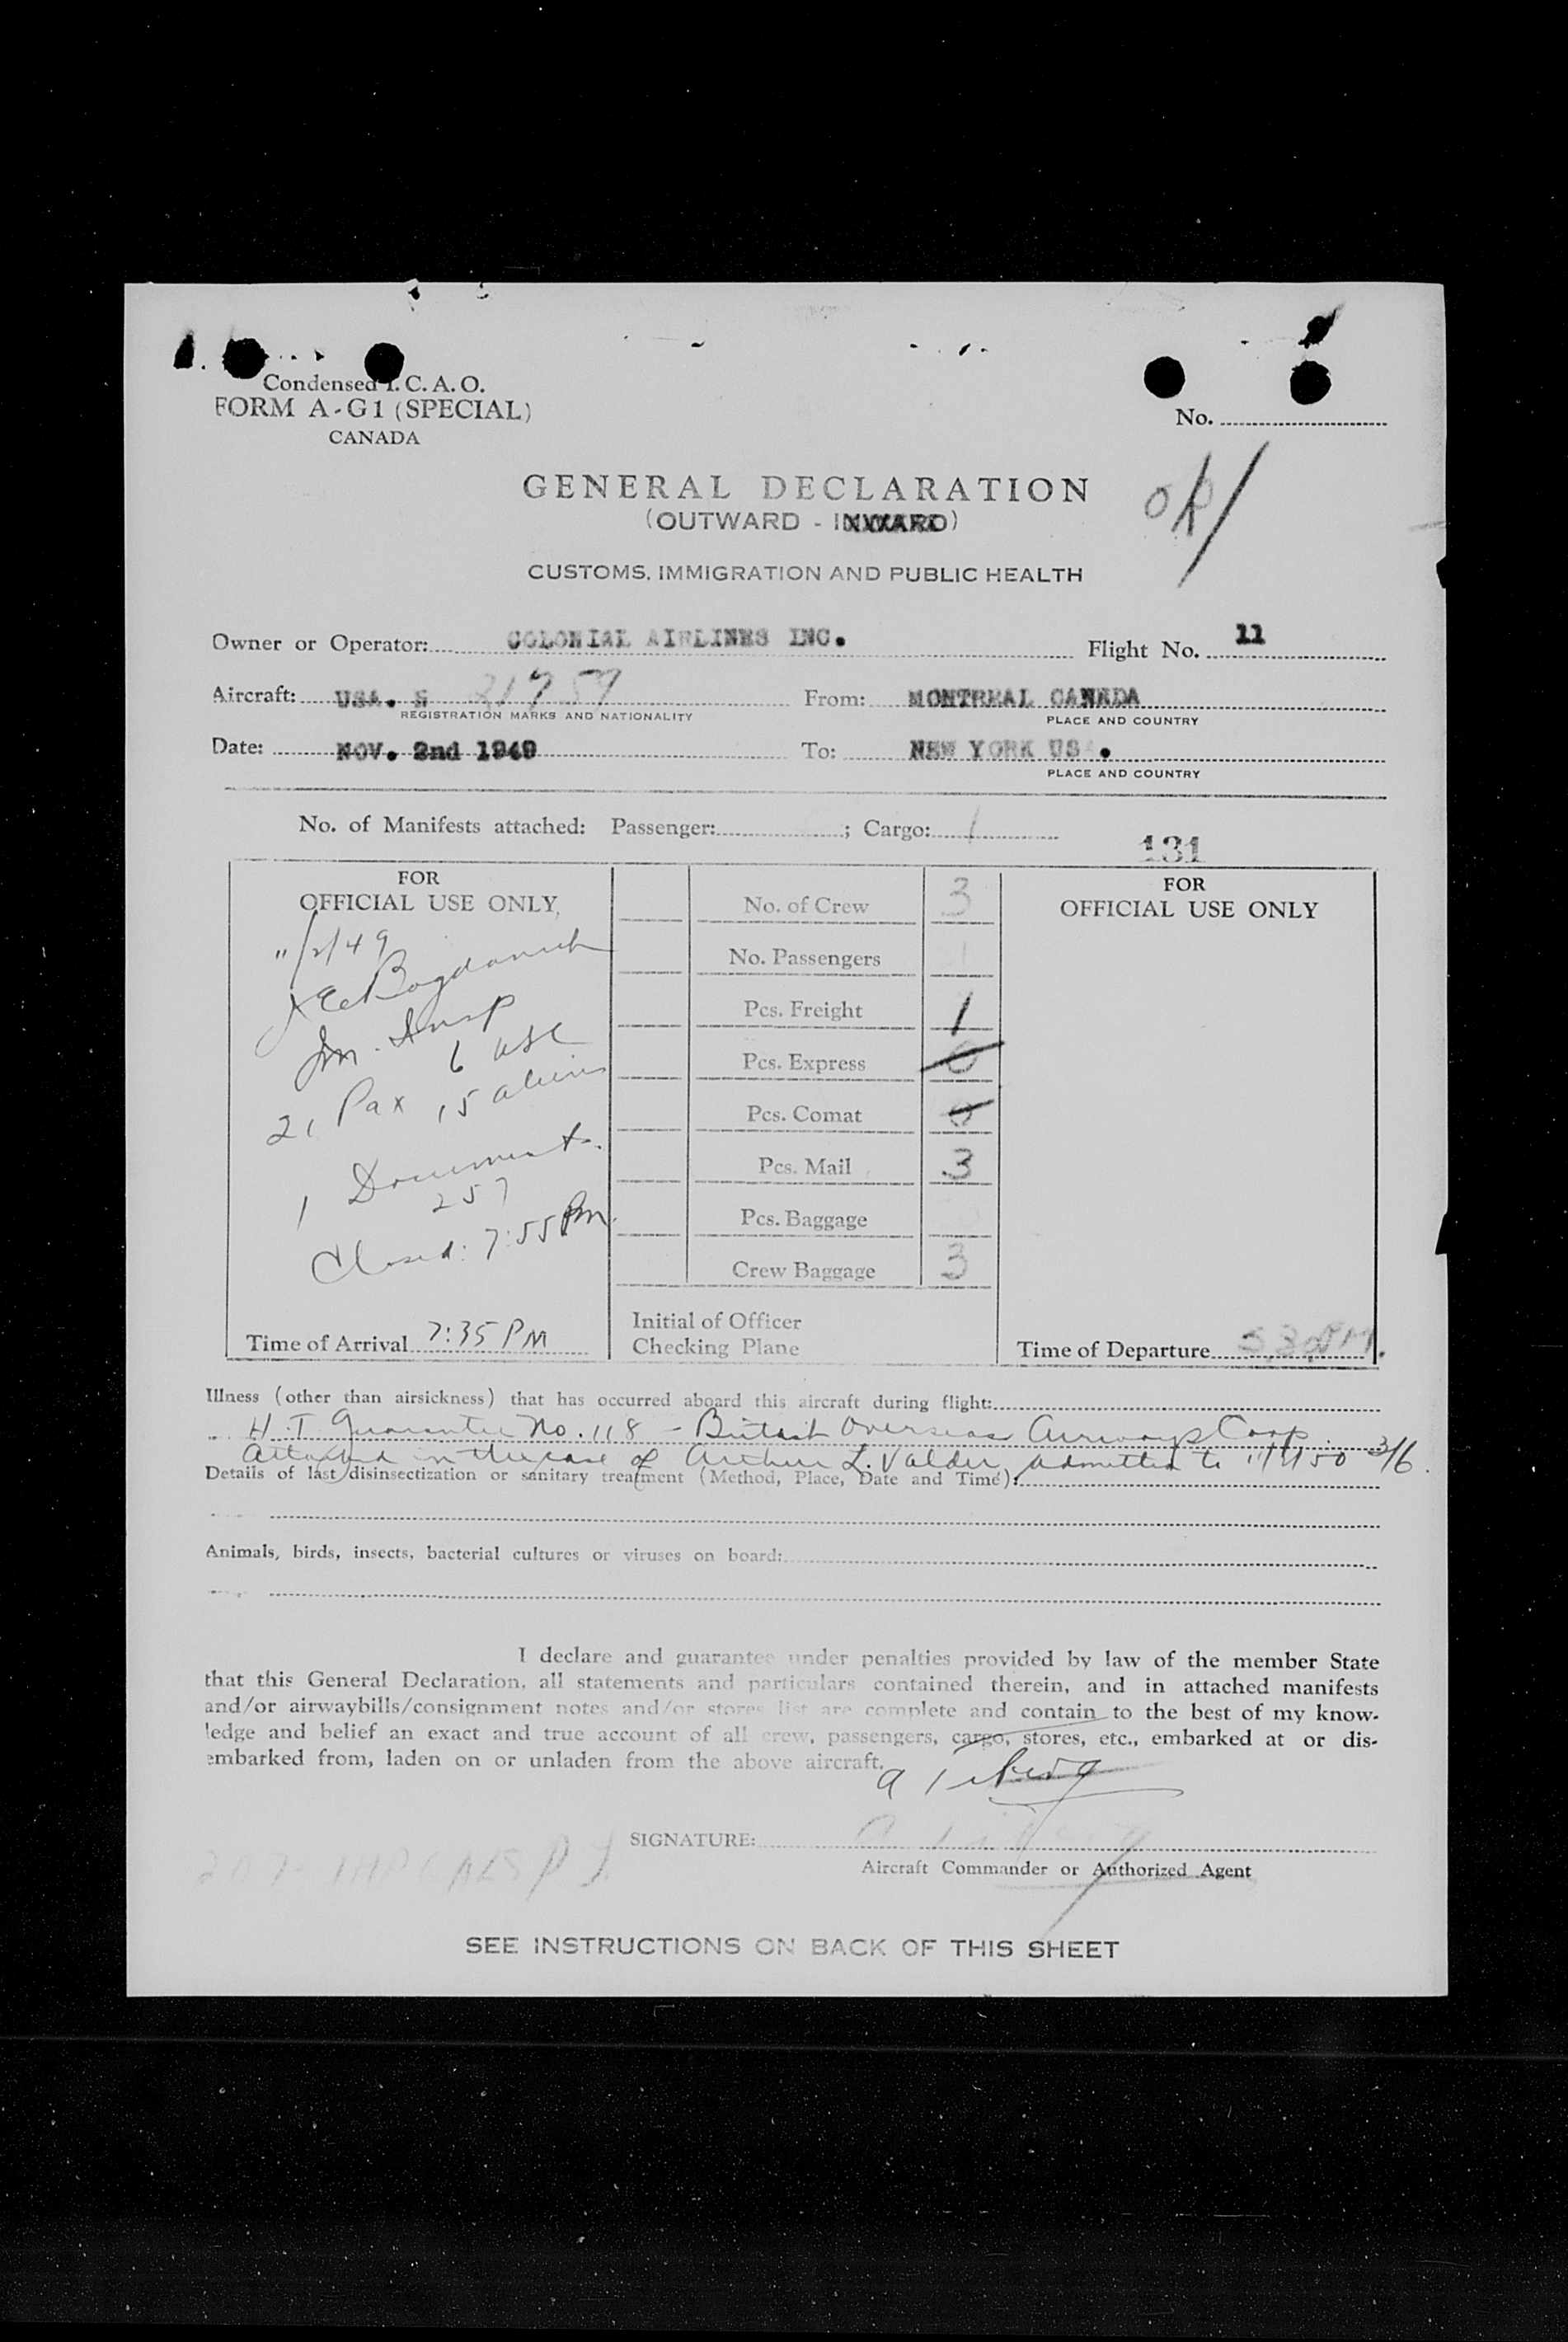 Condensed I. C. A. O.
FORM A-G1 (SPECIAL)
CANADA
No.
GENERAL DECLARATION
OK
(OUTWARD - INWARD)
CUSTOMS, IMMIGRATION AND PUBLIC HEALTH
Owner or Operator: COLONIAL AIRLINES INC. Flight No. 11
Aircraft: USA. N 21757 From: MONTREAL CANADA
REGISTRATION MARKS AND NATIONALITY PLACE AND COUNTRY
Date: NOV. 2nd 1949 To: NEW YORK USA.
PLACE AND COUNTRY
No. of Manifests attached: Passenger: ; Cargo: 1
131
FOR
OFFICIAL USE ONLY
11/2/49
Bogdanich
Im. Insp
6 USC
21 Pax 15 aliens
1 Document
257
Closed: 7:55 PM
Time of Arrival 7:35 PM
No. of Crew 3
No. Passengers
Pcs. Freight 1
Pcs. Express 0
Pcs. Comat 0
Pcs. Mail 3
Pcs. Baggage
Crew Baggage 3
Initial of Officer
Checking Plane
FOR
OFFICIAL USE ONLY
Time of Departure 530PM.
Illness (other than airsickness) that has occurred aboard this aircraft during flight:
H.T Guarantee No. 118 - British Overseas Airways Corp.
Attached in the case of Arthur L. Valder, admitted to 3/6.
Details of last disinsectization or sanitary treatment (Method, Place, Date and Time):
Animals, birds, insects, bacterial cultures or viruses on board:
I declare and guarantee under penalties provided by law of the member State
that this General Declaration, all statements and particulars contained therein, and in attached manifests
and/or airwaybills/consignment notes and/or stores list are complete and contain to the best of my know-
ledge and belief an exact and true account of all crew, passengers, cargo, stores, etc., embarked at or dis-
embarked from, laden on or unladen from the above aircraft.
SIGNATURE:
Aircraft Commander or Authorized Agent
SEE INSTRUCTIONS ON BACK OF THIS SHEET